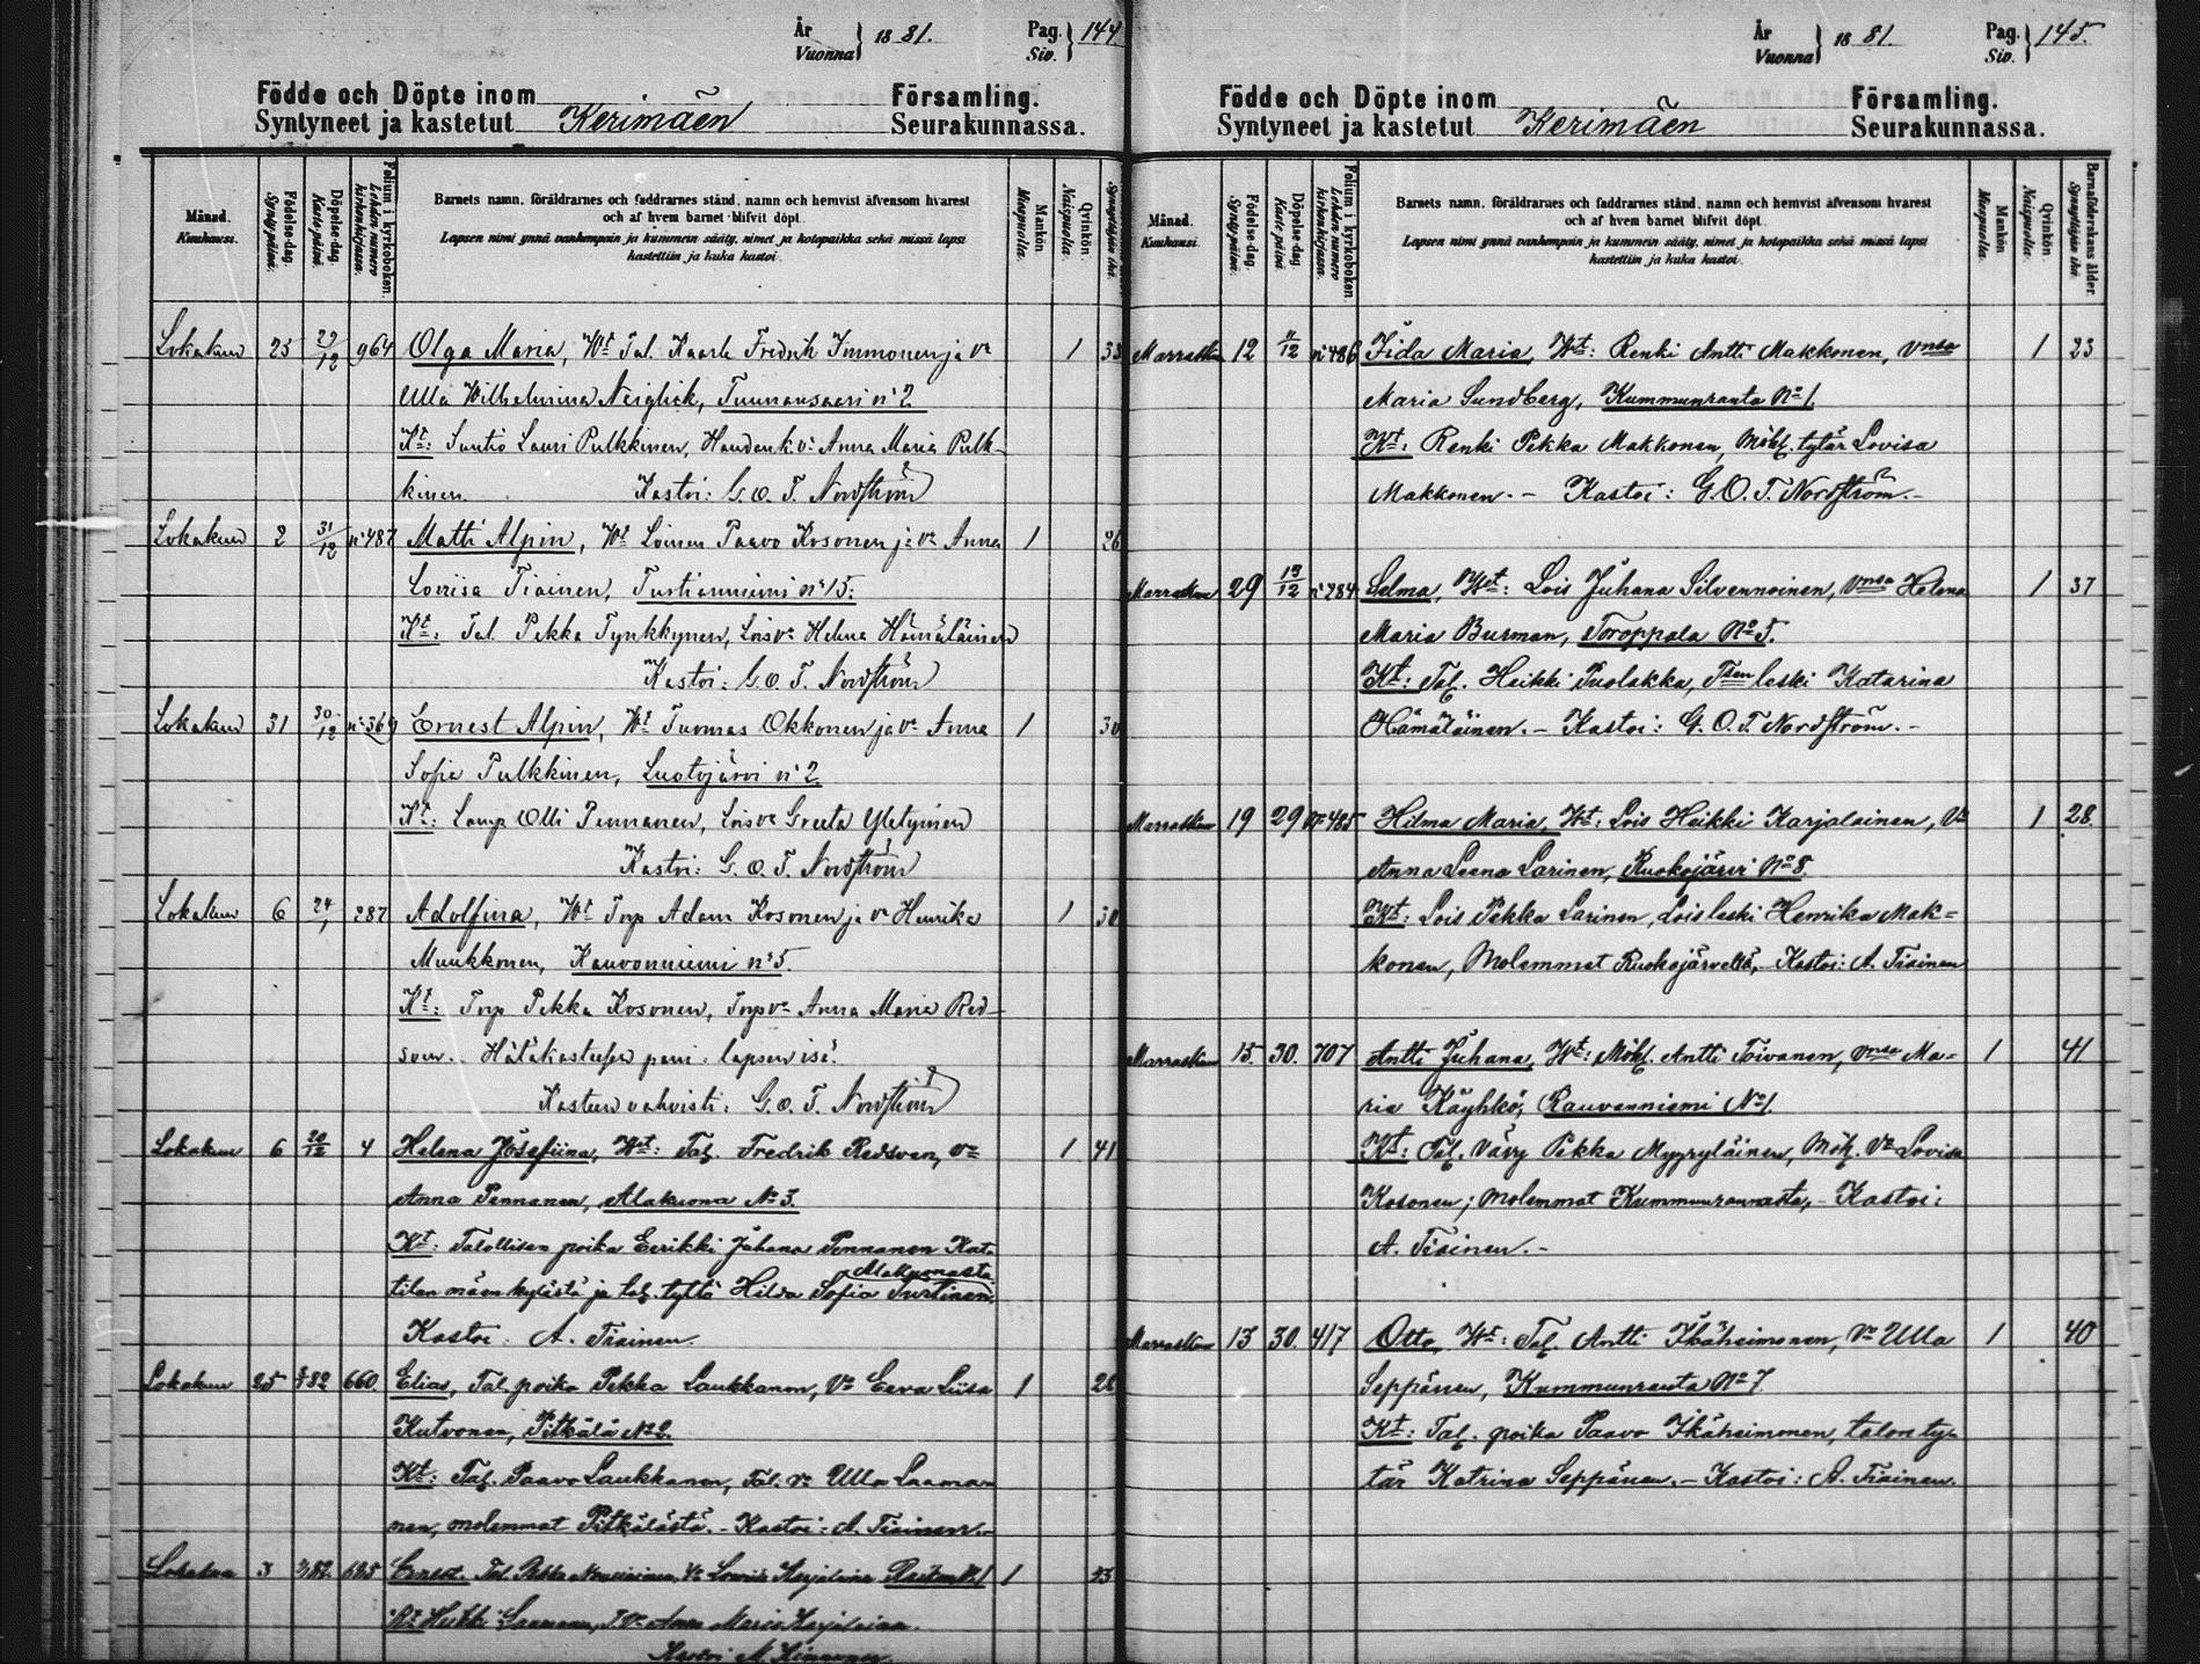 År
Vuonna } 1881.
Pag.
Siv. } 144
Födde och Döpte inom Församling.
Syntyneet ja kastetut Kerimäen Seurakunnassa.
Månad.
Kuukausi.
Födelse-dag.
Syntypäivä.
Döpelse-dag.
Kaste päivä.
Folium i kyrkoboken.
Lehden numero kirkonkirjassa.
Barnets namn, föräldrarnes och faddrarnes stånd, namn och hemvist äfvensom hvarest
och af hvem barnet blifvit döpt.
Lapsen nimi ynnä vanhempain ja kummein sääty, nimet ja kotopaikka sekä missä lapsi
kastettiin ja kuka kastoi.
Mankön
Miespuolia.
Qvinkön.
Naispuolia.
Synnyttäjän ikä.
Lokakuu 23 29/12 964 Olga Maria, Wt Tal. Kaarle Fredrik Immonen ja vo 1 38
Ulla Wilhelmina Neiglick, Tuunansaari no 2
Kt: Suntio Lauri Pulkkinen, Haudank. vo Anna Maria Pulk-
kinen. Kastoi: G. O. T. Nordström
Lokakuu 2 31/12 no 487 Matti Alpin, Wt Loinen Paavo Kosonen ja vo Anna 1 26
Loviisa Tiainen, Turtianniemi no 15.
Kt: Tal. Pekka Tynkkynen, Lois vo Helena Hämäläinen
Kastoi: G. O. T. Nordström
Lokakuu 31 30/12 no 369 Ernest Alpin, Wt Tuomas Okkonen ja vo Anna 1 30
Sofia Pulkkinen, Luotojärvi no 2.
Kt: Lamp Olli Pennanen, Lois vo Greeta Yletyinen
Kastoi: G. O. T. Nordström
Lokakuu 6 24/1 287 Adolfina, Wt Torp Adam Kosonen ja vo Henrika 1 30
Muukkonen, Kauvonniemi no 5.
Kt: Torp Pekka Kosonen, Torp vo Anna Maria Red-
sven. Hätäkasteesen pani lapsen isä.
Kasteen vahvisti: G. O. T. Nordström
Lokakuu 6 20/12 4 Helena Josefiina, Wt: Tal. Fredrik Redsven, Vo 1 41
Anna Pennanen, Alakuona No 3.
Kt: Talollisen poika Eerikki Juhana Pennanen Kat-
Alakuonasta
tilan mäen kylästä ja tal. tyttö Hilda Sofia Turtinen.
Kastoi: A. Tiainen.
Lokakuu 25 82 660 Elias, Tal. poika Pekka Laukkanen, Vo Eeva Liisa 1 26
Kutvonen, Pitkälä No 2.
Kt: Tal. Paavo Laukkanen, Tal. Vo Ulla Laama-
nen, molemmat Pitkälästä. - Kastoi: A. Tiainen.
Lokakuu 3 82. 625 Ernest. Tal. Pekka vo Karjalainen 1
Kt Heikki Laamanen, T. vo Anna Maria Karjalainen.
Kastoi
År
Vuonna } 1881.
Pag.
Siv. } 145.
Födde och Döpte inom Församling.
Syntyneet ja kastetut Kerimäen Seurakunnassa.
Månad.
Kuukausi.
Födelse-dag.
Syntypäivä.
Döpelse-dag.
Kaste päivä.
Folium i kyrkoboken.
Lehden numero kirkonkirjassa.
Barnets namn, föräldrarnes och faddrarnes stånd, namn och hemvist äfvensom hvarest
och af hvem barnet blifvit döpt.
Lapsen nimi ynnä vanhempain ja kummein sääty, nimet ja kotopaikka sekä missä lapsi
kastettiin ja kuka kastoi.
Mankön
Miespuolia.
Qvinkön
Naispuolia.
Barnaföderskans ålder.
Synnyttäjän ikä.
Marraskuu 12 11/12 no 486 Iida Maria, Wt: Renki Antti Makkonen, Vmsa 1 23
Maria Sundberg, Kummunranta No 1.
Kt: Renki Pekka Makkonen, Mökl. tytär Lovisa
Makkonen. - Kastoi: G. O. T. Nordström. -
Marraskuu 29 13/12 no 284 Selma, Wt: Lois Juhana Silvennoinen, Vmsa Helena 1 37
Maria Burman, Toroppala No 5.
Kt: Tal. Heikki Puolakka, Tsen leski Katarina
Hämäläinen. - Kastoi: G. O. T. Nordström. -
Marraskuu 19 29 485 Hilma Maria, Wt: Lois Heikki Karjalainen, Vo 1 28.
Anna Leena Larinen, Ruokojärvi No 8.
Kt: Lois Pekka Larinen, Lois leski Henrika Mak=
konen, Molemmat Ruokojärveltä, - Kastoi: A. Tiainen
Marraskuu 15. 30. 707 Antti Juhana, Wt: Mökl. Antti Toivanen, Vmsa Ma= 1 41
ria Käyhkö, Rauvanniemi No 1.
Kt: Tal. Vävy Pekka Myyryläinen, Mök. Vo Lovisa
Kosonen; Molemmat Kummunrannasta, - Kastoi:
A. Tiainen. -
Marraskuu 13 30. 417 Otto, Wt: Tal. Antti Ikäheimonen, Vo Ulla 1 40
Seppänen, Kummunranta No 7.
Kt: Tal. poika Paavo Ikäheimonen, talon ty-
tär Katrina Seppänen. - Kastoi: A. Tiainen.